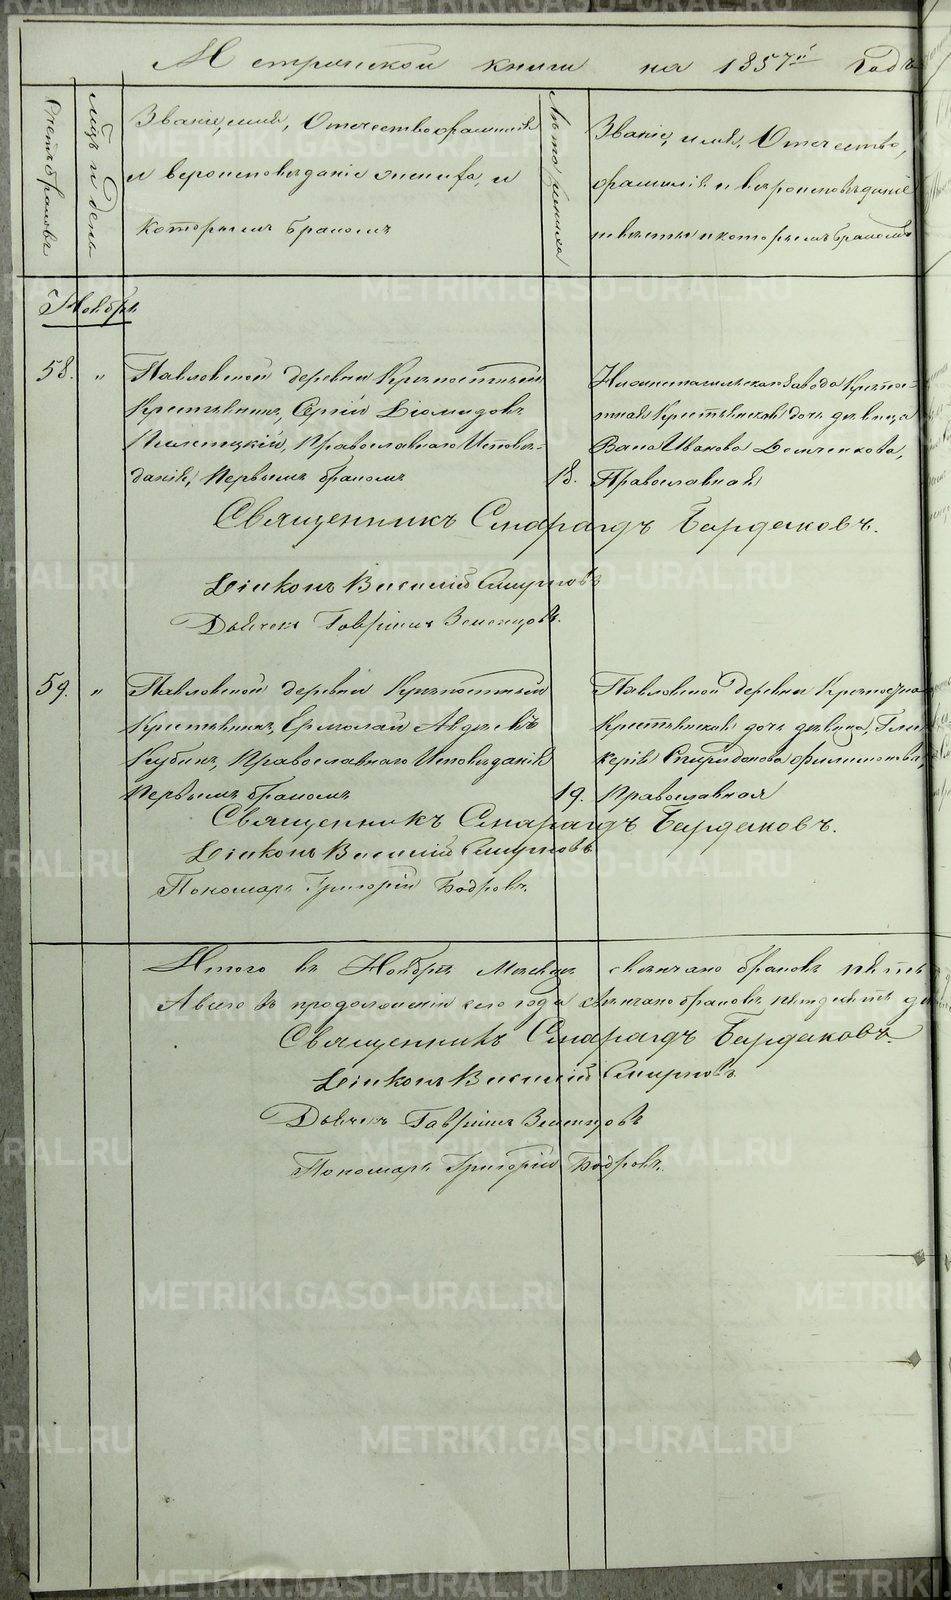 Метрической книги на 1857й годъ
Счетъ браковъ
Мцъ и день
Званіе, имя, Отечество фамилія
и вероисповѣданіе жениха, и
которымъ бракомъ
Лѣта жениха
Званіе, имя, Отечество,
фамилія и вѣроисповѣданіе
невѣсты и которымъ бракомъ
Ноябрь
58. "
Павловской деревни Крѣпостный
Крестьянинъ, Сергій Діомидовъ
Православнаго Исповѣ-
данія, Первымъ бракомъ
18.
Нижнетагильскаго Завода Крѣпос-
тная Крестьянская дочь девица
Иванова
Православная
Священникъ Смарагдъ Бардаковъ.
Діаконъ Василій Смирновъ
Дьячекъ Гавріилъ Земенцовъ.
59. "
Павловской деревни Крѣпостный
Крестьянинъ, Ермолай Авдѣевъ
Кубинъ, Православнаго Исповѣданія
Первымъ бракомъ
19.
Павловской деревни Крѣпостная
Крестьянская дочь девица, Гли-
керія Спиридонова Филимонова,
Православная
Священникъ Смарагдъ Бардаковъ.
Діаконъ Василій Смирновъ
Пономарь Григорій Бодровъ.
Итого въ Ноябрѣ Месяцѣ свѣнчано браковъ пять
А всего въ продолженіи сего года свѣнчано браковъ пятдесятъ де
Священникъ Смарагдъ Бардаковъ.
Діаконъ Василій Смирновъ
Дьячекъ Гавріилъ Земенцовъ
Пономарь Григорій Бодровъ.
METRIKI.GASO-URAL.RU